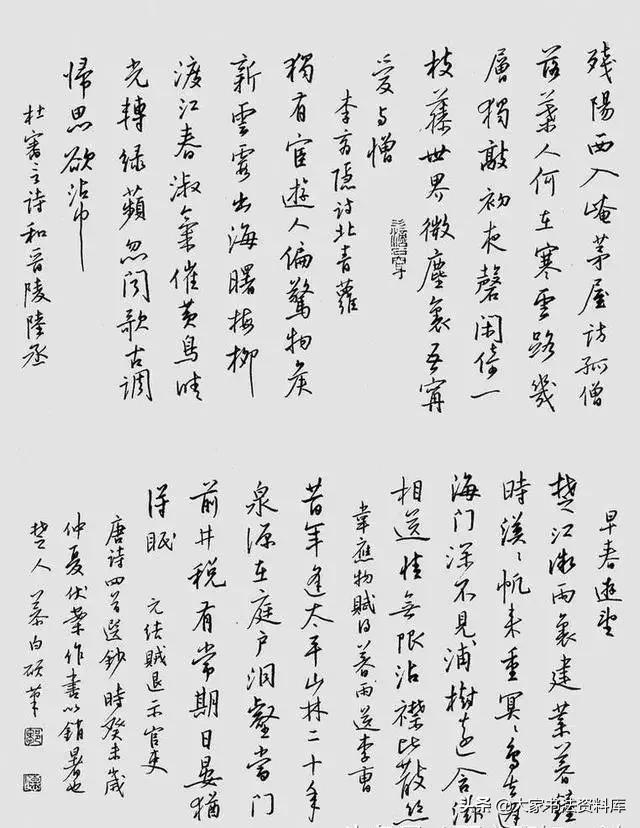 殘陽西入崦茅屋訪孤僧
落葉人何在寒雲路幾
層獨敲初夜磬閑倚一
枝藤世界微塵裏吾寧
愛与憎
李商隱詩北青蘿
獨有宦遊人偏驚物候
新雲霞出海曙梅柳
渡江春淑氣催黃鳥晴
光轉綠蘋忽聞歌古調
歸思欲沾巾
杜審言詩和晉陵陸丞
早春遊望
楚江微雨裏建業暮鐘
時漠〻帆來重冥〻鳥去遲
海門深不見浦樹遠含滋
相送情無限沾襟比散絲
韋應物賦得暮雨送李曹
昔年逢太平山林二十年
泉源在庭戶洞壑當門
前井税有常期日晏猶
得眠 元結賊退示官吏
唐詩四首選鈔時癸未歲
仲夏伏案作書以銷暑也
楚人慕白硯筆
头条 @大家书法资料库